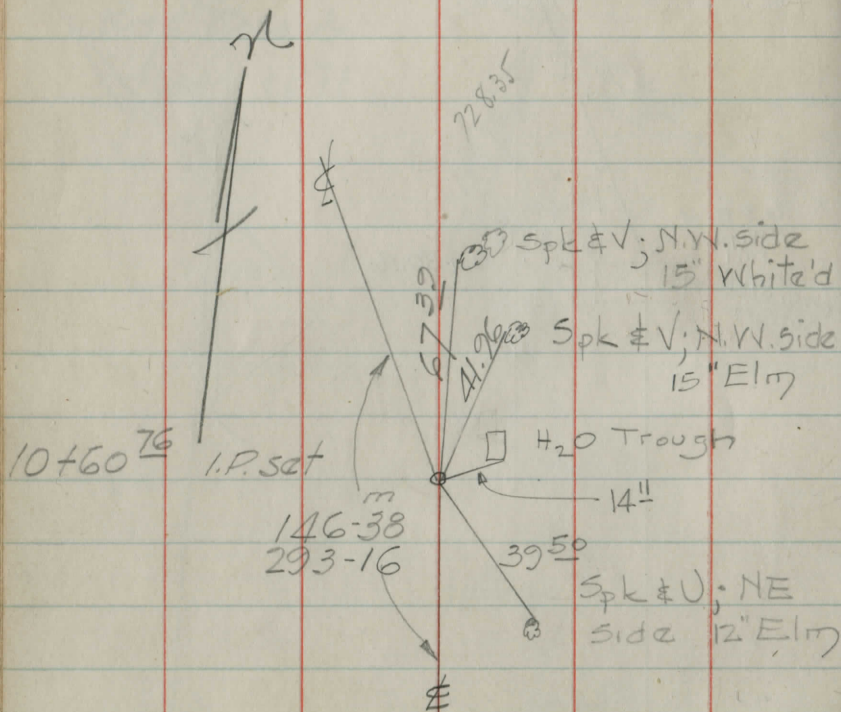 N
72835
℄
67 39
Spk & V; N.W. side
15" White'd
41.96
Spk & V; N.W. side
15" Elm
H2O Trough
10+60 76 I.P. set
14 11
m
146-38
293-16
39 50
Spk & U; NE
side 12" Elm
℄